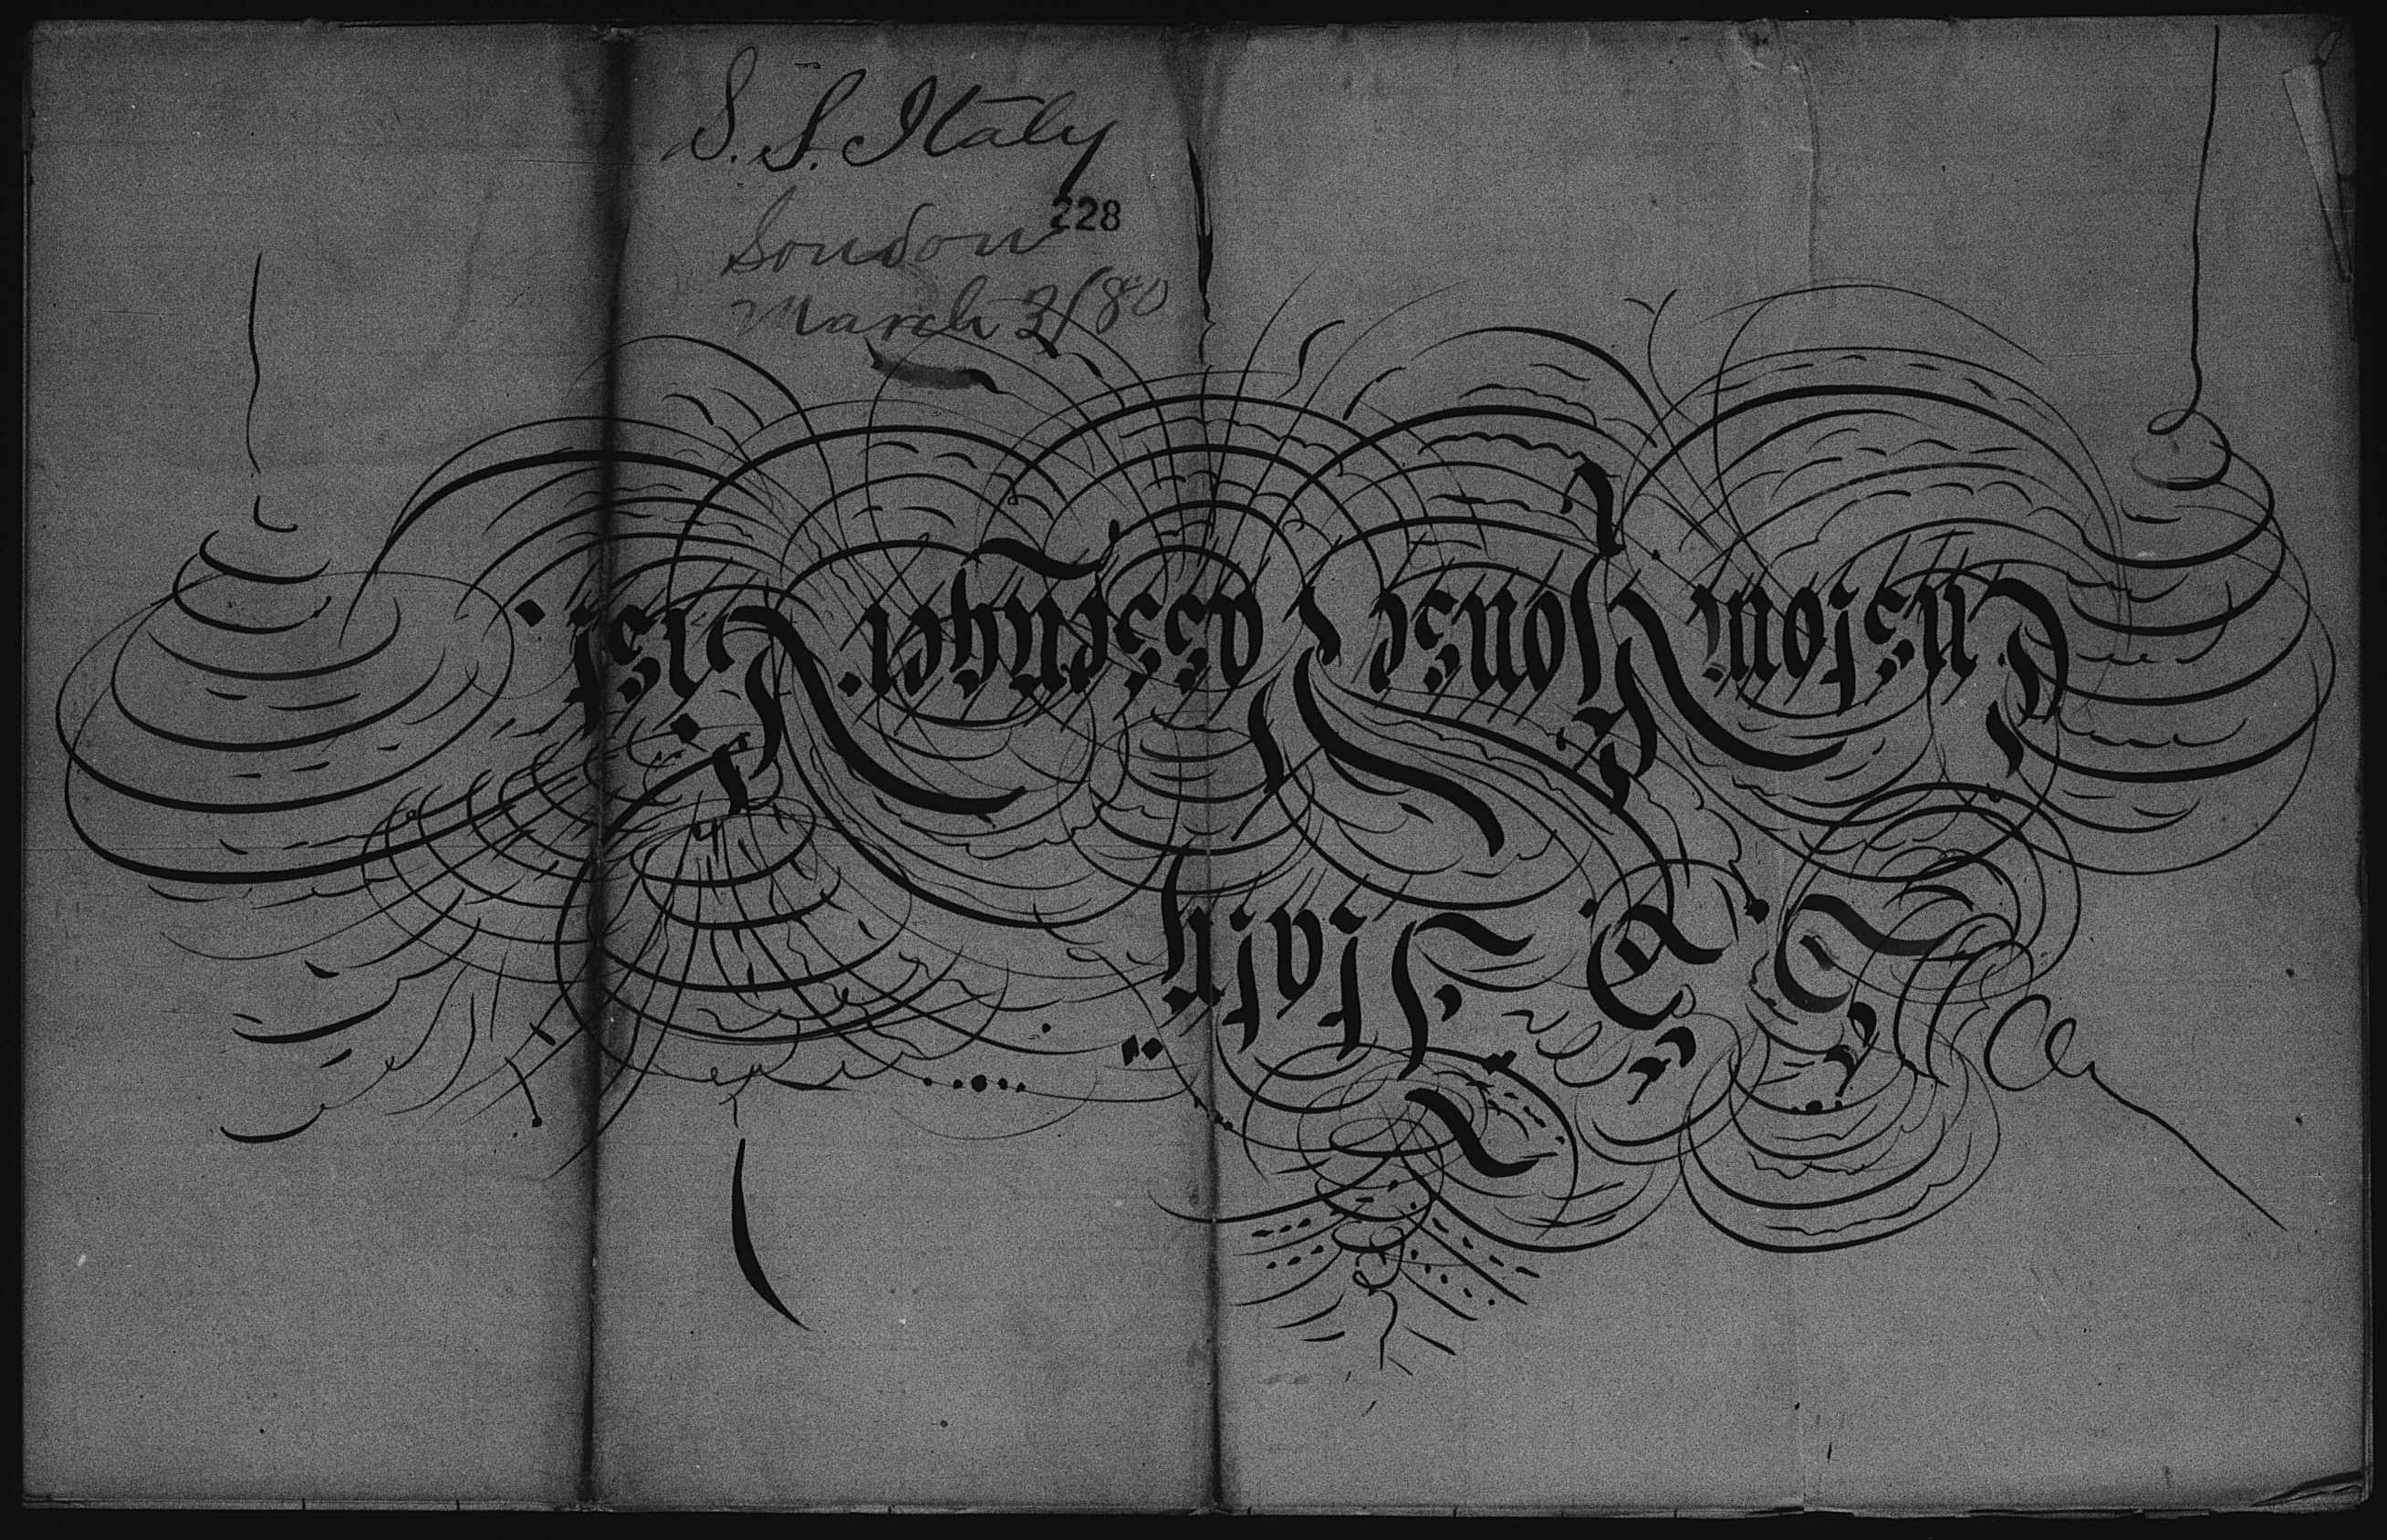 S. S. Italy
228
London
March 3/80
Custom House Passenger List.
S. S. Italy